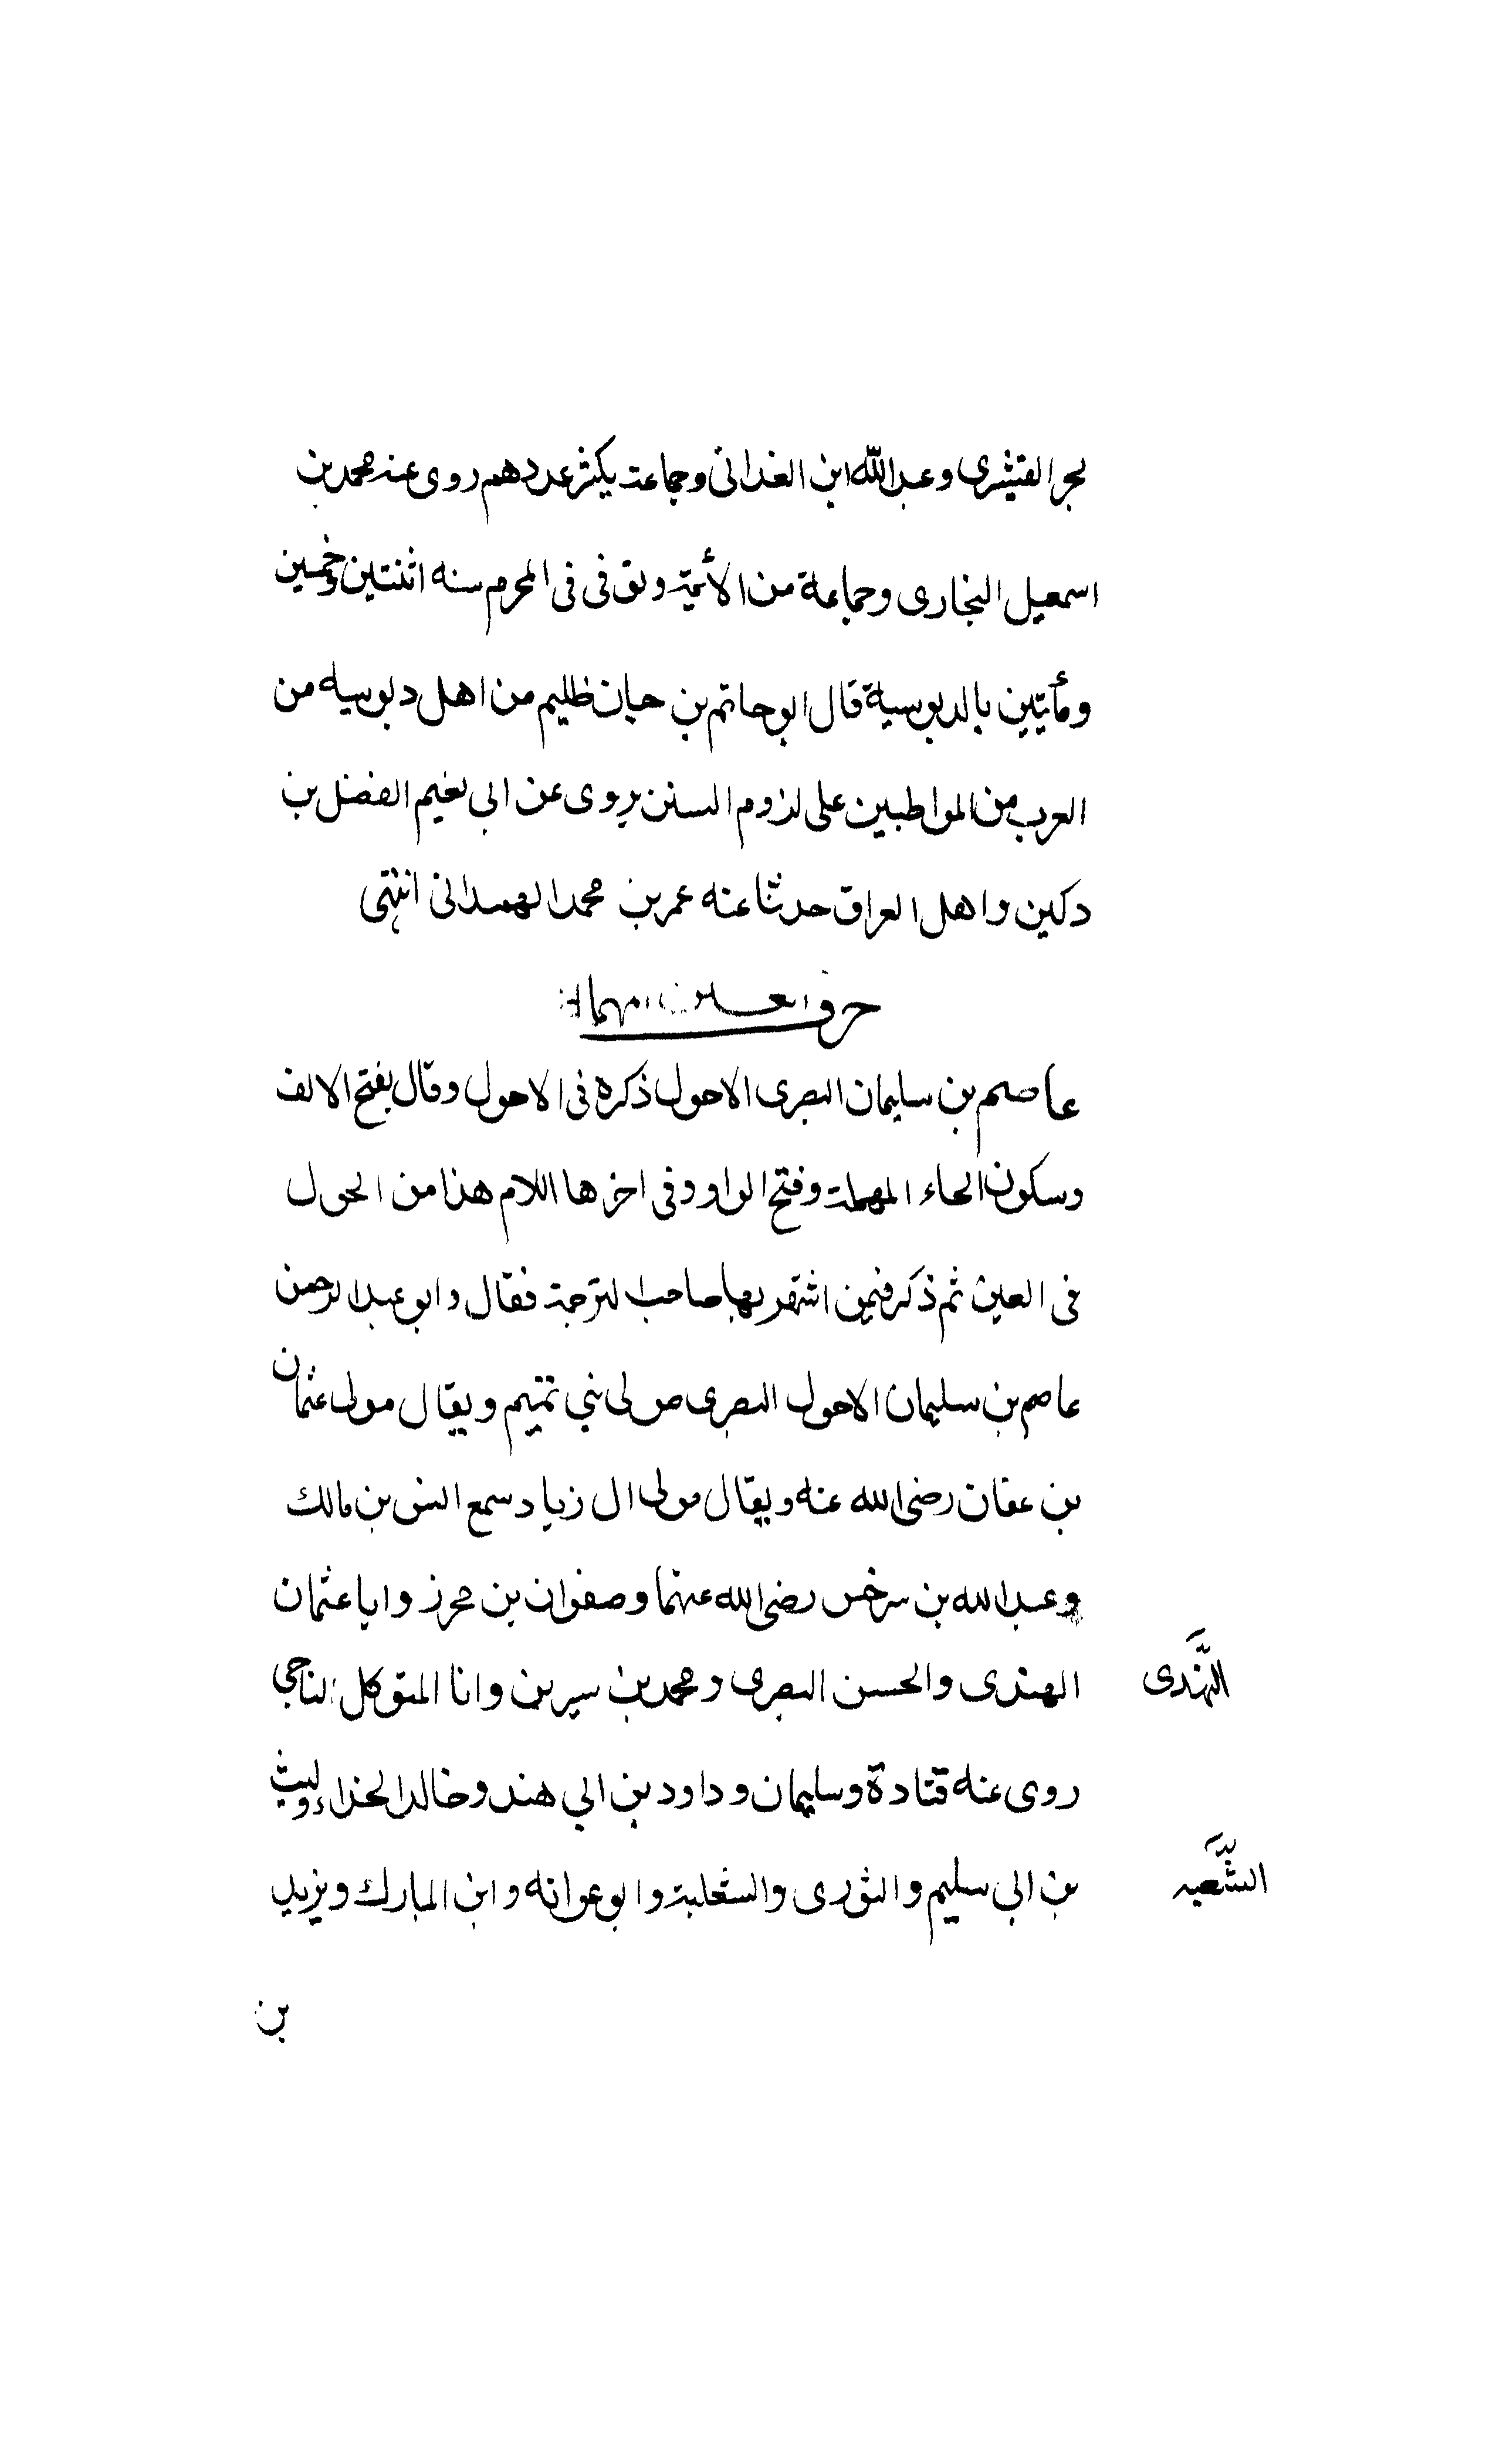 بحر القشيرى وعبد الله ابن الغدانى وجماعة يكثر عددهم روى عنه محمد بن
اسمعيل البخارى وجماعة من الأئمة وتوفى فى المحرم سنه اثنتين وخمسين
ومأتين بالدبوسية قال ابو حاتم بن حبان ظليم من اهل دبوسيه من
العرب من المواظبين على لزوم السنن يروى عن ابى نعيم الفضل بن
دكين واهل العراق حدثنا عنه عمر بن محمد الهمدانى انتهى
حرف العين المهملة
عاصم بن سليمان البصرى الاحول ذكره فى الاحول وقال بفتح الالف
وسكون الحاء المهملة وفتح الواو وفى اخرها اللام هذا من الحول
فى العين ثم ذكر فيمن اشتهر بها صاحب الترجمة فقال وابو عبد الرحمن
عاصم بن سليمان الاحول البصرى مولى بنى تميم ويقال مولى عثمان
بن عفان رضى الله عنه ويقال مولى ال زياد سمع انس بن مالك
وعبد الله بن سرخس رضى الله عنهما وصفوان بن محرز وابا عثمان
الهندى والحسن البصرى ومحمد بن سيرين وابا المتوكل الناجى
النَّهدى
روى عنه قتادة وسليمان وداود بن ابي هند وخالد الحذاء وليث
بن ابي سليم والثورى والشعلبة وابو عوانه وابن المبارك ويزيد
بن